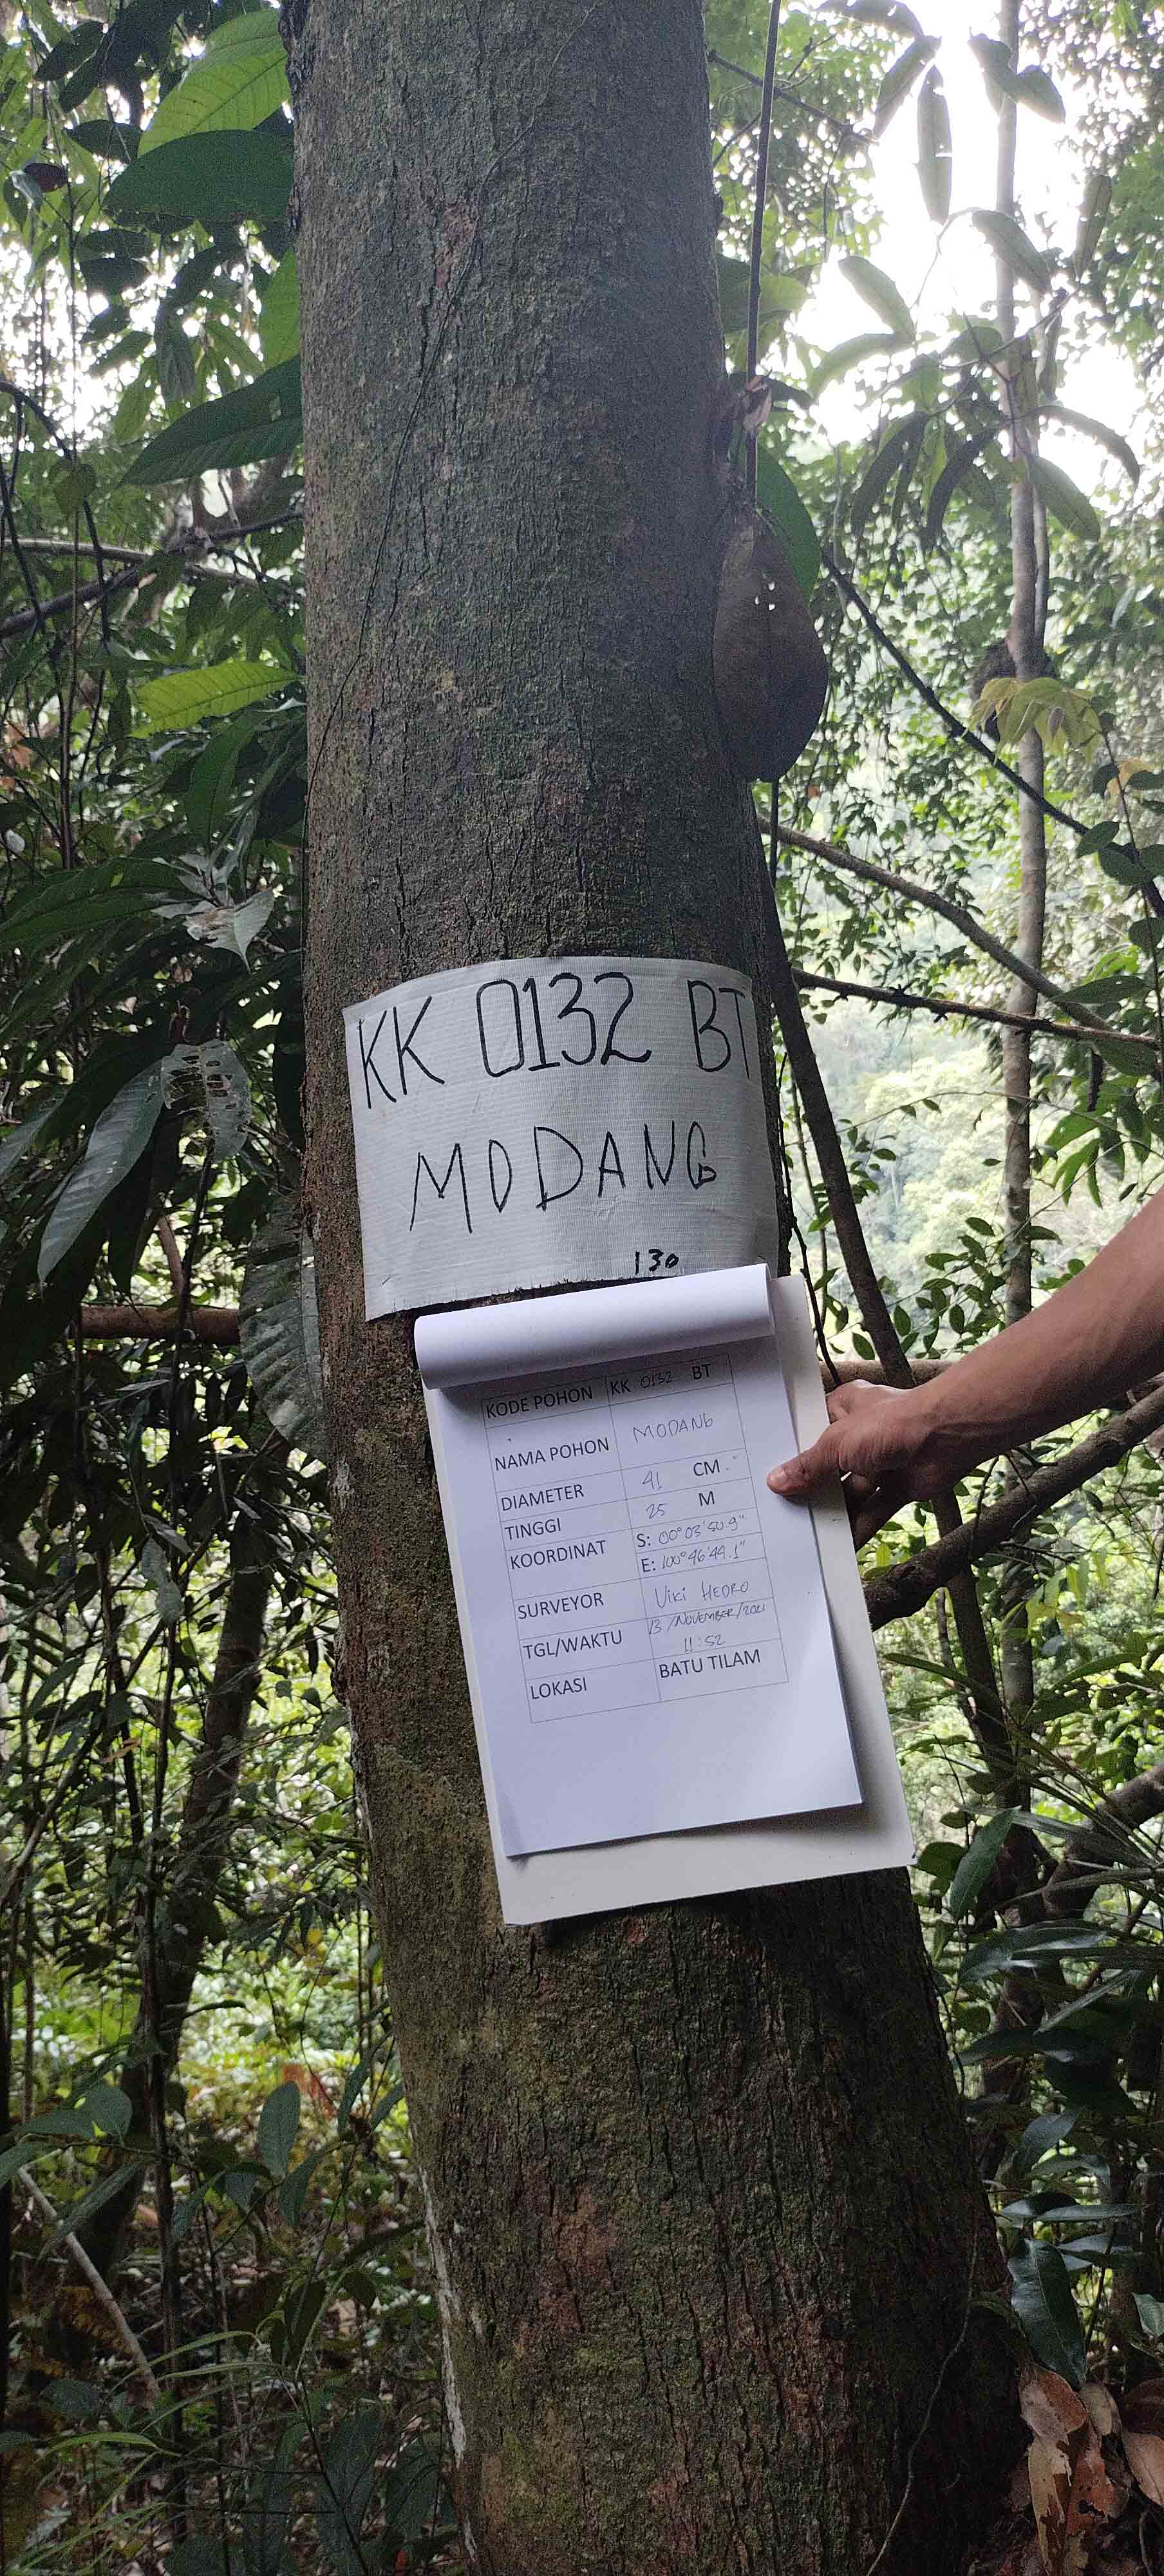 KK 0132 BT
MODANG
130
KODE POHON KK 0132 BT
NAMA POHON MODANG
DIAMETER 41 CM
TINGGI 25 M
KOORDINAT S: 00°03'50.9"
E: 100°46'44.1"
SURVEYOR Viki HEDRO
TGL/WAKTU 13/NOVEMBER/2021
11:52
LOKASI BATU TILAM